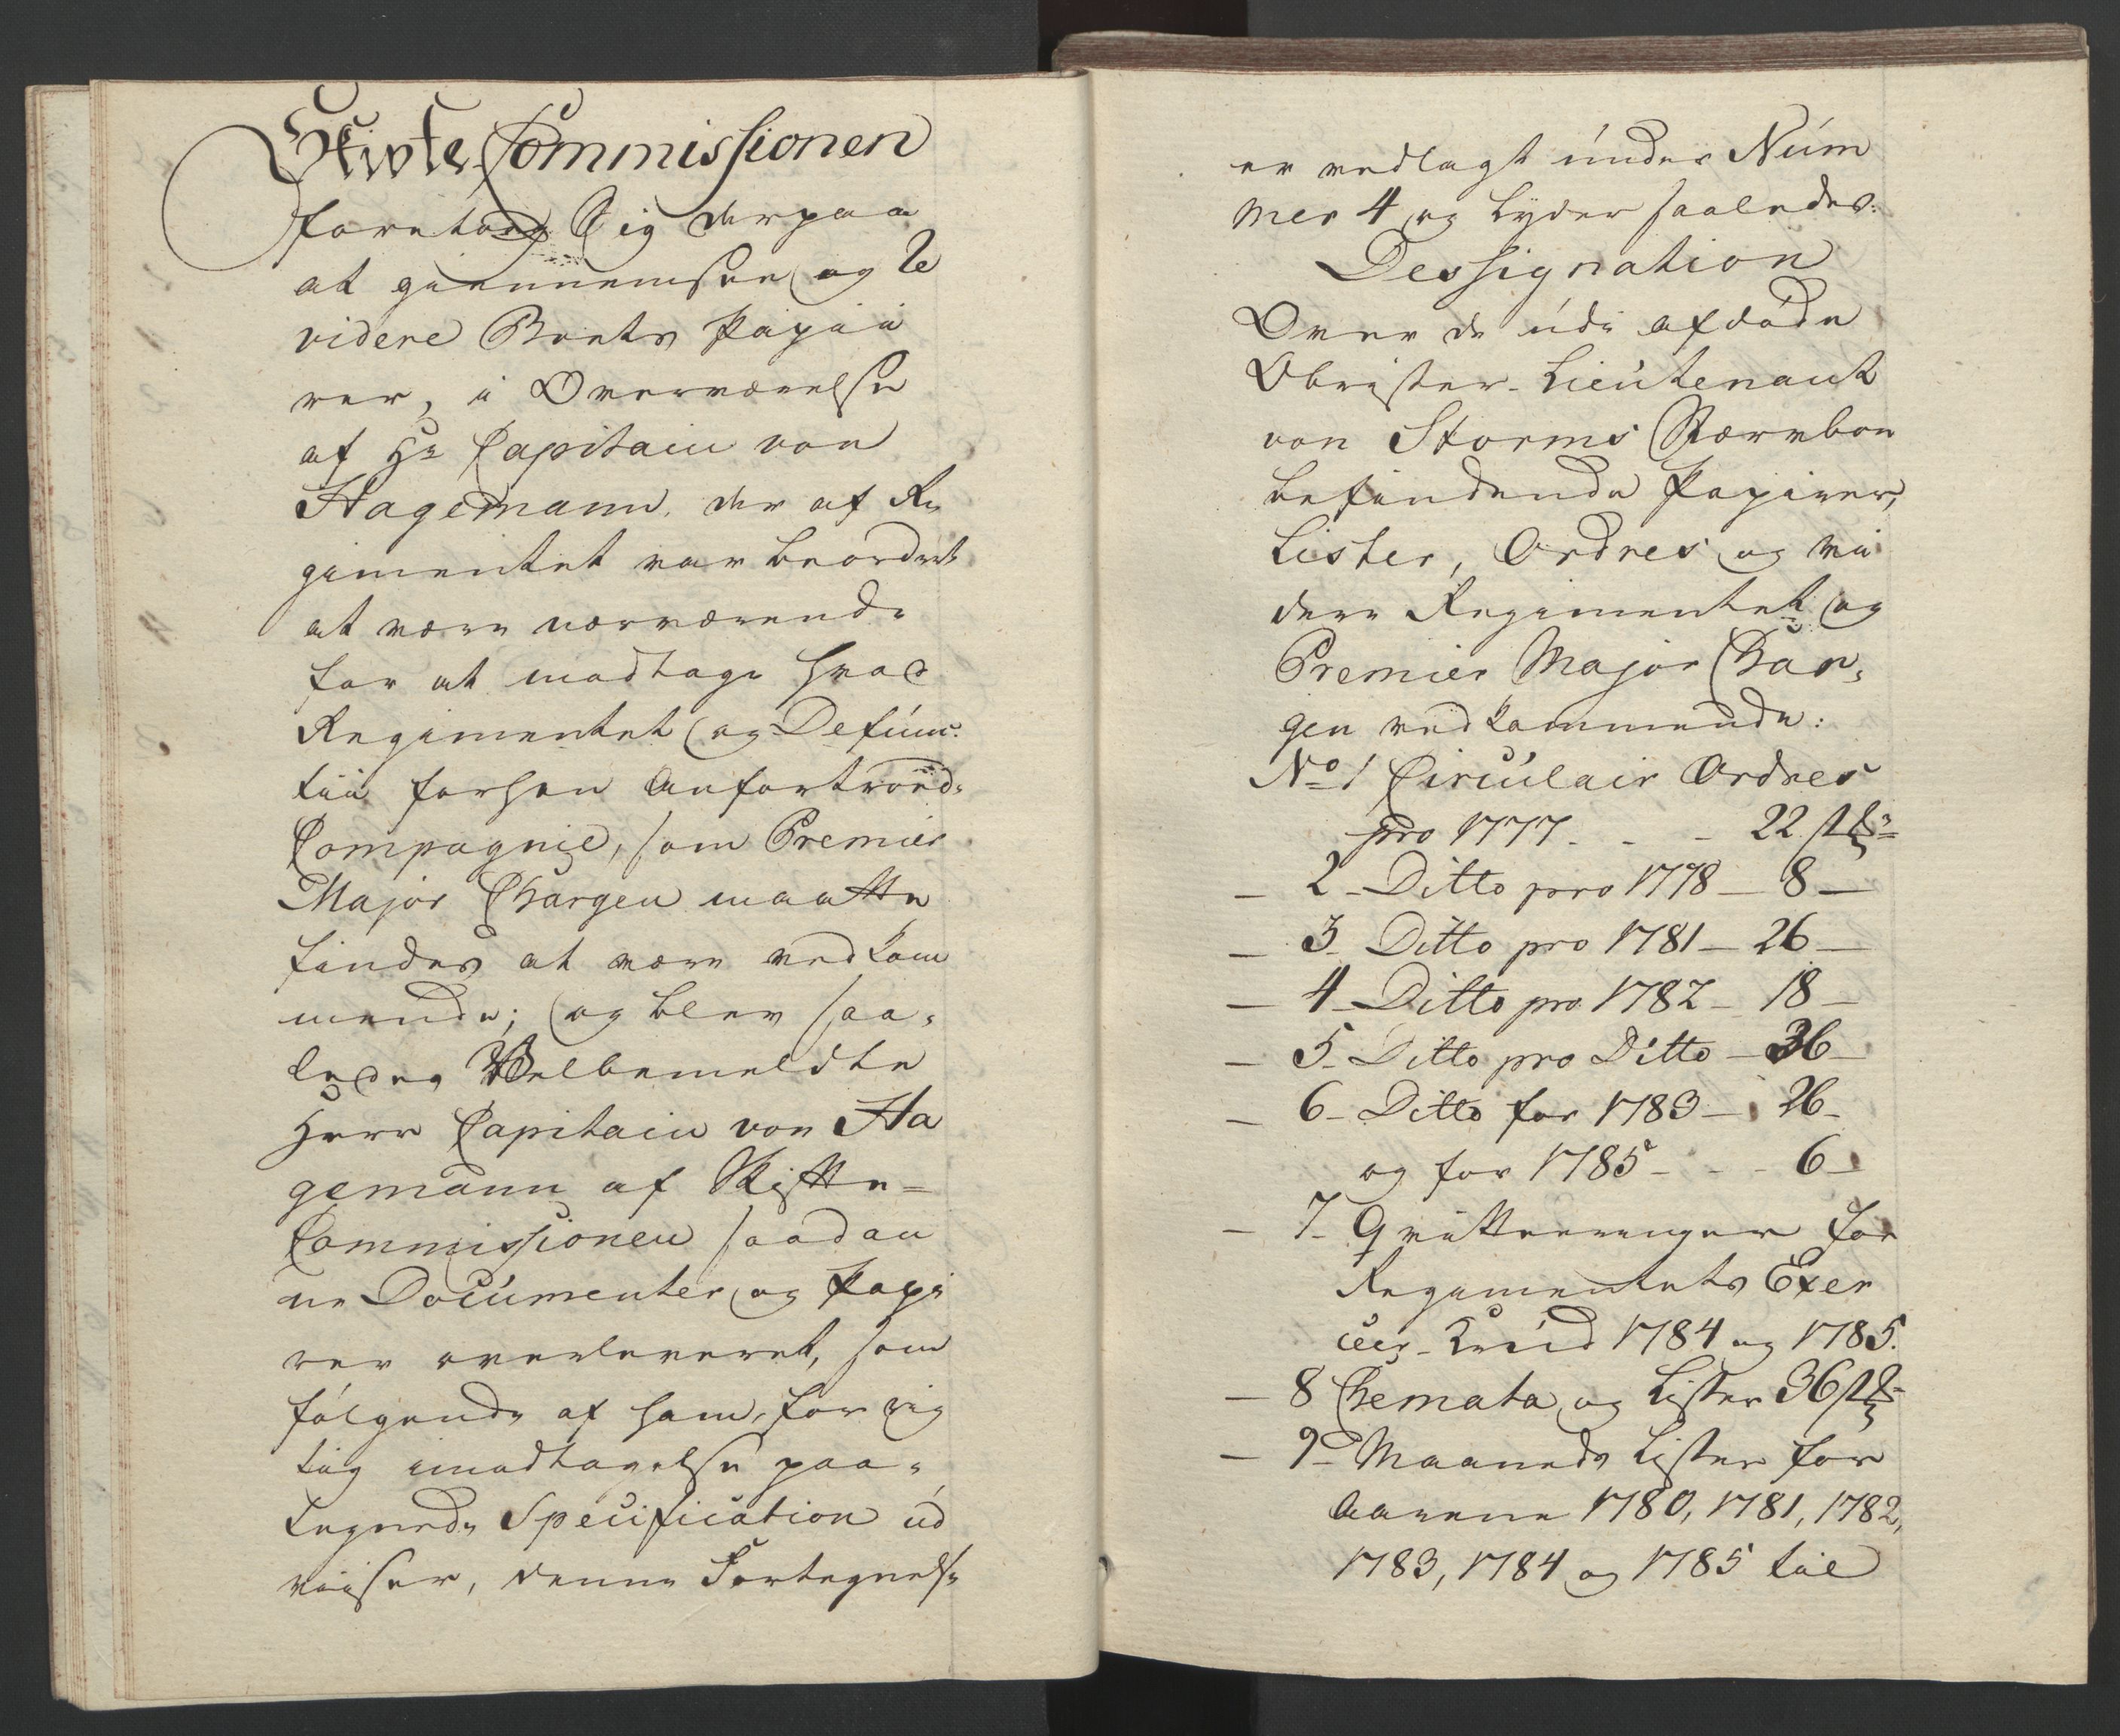 Skifte-Commissionen
foretoeg Sig derpaa
at giennemsee og Re
videre Boets Papii
rer, i Overværelse
af Hr Capitain von
Hagemann, der af Re
gimentet var beordret
at være nærværende
for at modtage hvad
Regimentet og Defunc-
tii forhen anfortroede
Compagnie, som Premier
Major Chargen maatte
findes at være vedkom
mende; og blev saa-
ledes Velbemeldte
Herr Capitain von Ha
gemann af Skifte-
Commissionen saadan
ne Documenter og Papi
rer overleveret, som
følgende af ham, for rig
tig imodtagelse paa-
tegnede Specification ud
viiser, denne Fortegnelse
er vedlagt under Num
mer 4 og lyder saaledes:
Dessignation
Over de udi afdøde
Obrister-Lieutenant
von Storms Stærvboe
befindende Papirer,
Lister, Ordres og vii
dere Regimentet og
Premier Major Char-
gen vedkommende:
No 1 Circulair Ordres
pro 1777 - - 22 stk:
- 2 - Ditto pro 1778 - 8 -
- 3 - Ditto pro 1781 - 26 -
- 4 - Ditto pro 1782 - 18 -
- 5 - Ditto pro Ditto - 36 -
- 6 - Ditto for 1783 - 26 -
og for 1785 - - - 6 -
- 7 - Qvitteringer for
Regimentets Exer
ceer-Krud 1784 og 1785.
- 8 Chemata og Lister 36 stk
- 9 - Maaneds Lister for
Aarene 1780, 1781, 1782,
1783, 1784 og 1785 til